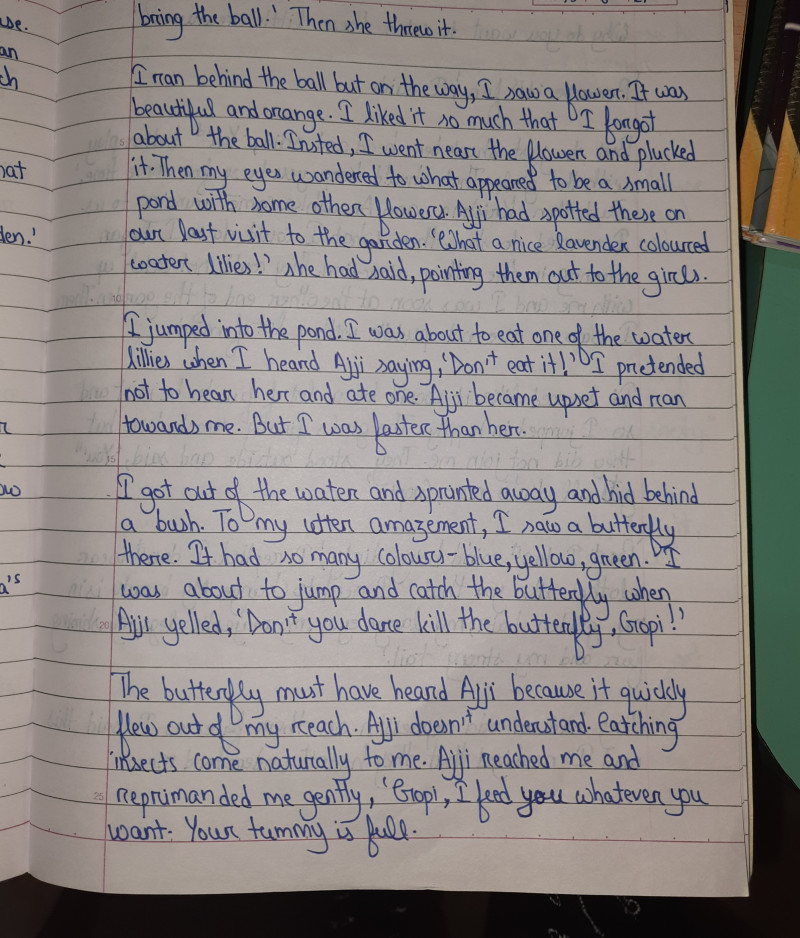 bring the ball.' Then she threw it.
I ran behind the ball but on the way, I saw a flower. It was
beautiful and orange. I liked it so much that I forgot
about the ball. Insted, I went near the flower and plucked
it. Then my eyes wandered to what appeared to be a small
pond with some other flowers. Ajji had spotted these on
our last visit to the garden. 'What a nice lavender coloured
water lilies!' she had said, pointing them out to the girls.
I jumped into the pond. I was about to eat one of the water
lillies when I heard Ajji saying, 'Don't eat it!' I pretended
not to hear her and ate one. Ajji became upset and ran
towards me. But I was faster than her.
I got out of the water and sprinted away and hid behind
a bush. To my utter amazement, I saw a butterfly
there. It had so many colours - blue, yellow, green. I
was about to jump and catch the butterfly when
Ajji yelled, 'Don't you dare kill the butterfly, Gopi!'
The butterfly must have heard Ajji because it quickly
flew out of my reach. Ajji doesn't understand. Catching
insects come naturally to me. Ajji reached me and
25 reprimanded me gently, 'Gopi, I feed you whatever you
want. Your tummy is full.
use.
an
ch
hat
den.'
r
ow
a's